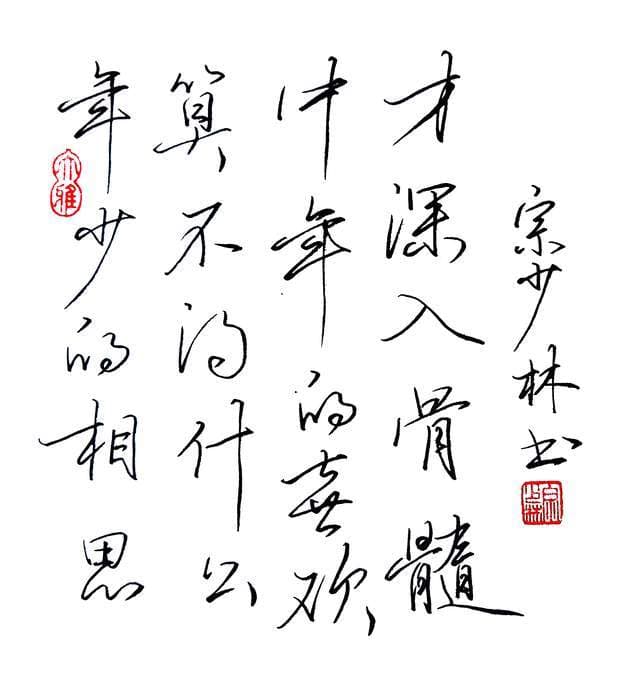 年少的相思
算不得什么
中年的喜欢
才深入骨髓
宗少林书